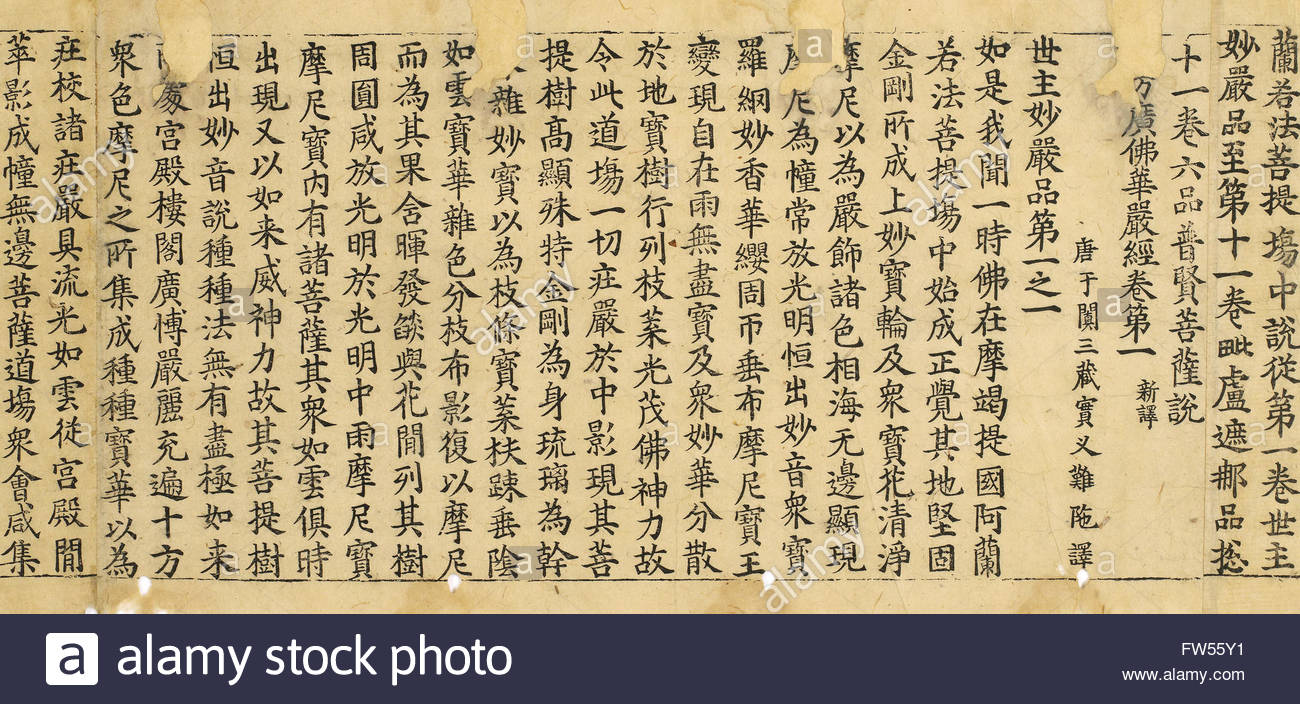 蘭若法菩提塲中說從第一卷世主
妙嚴品至第十一卷毗盧遮那品揔
十一卷六品普賢菩薩說
方廣佛華嚴經卷第一 新譯
唐于闐三藏實义難陁譯
世主妙嚴品第一之一
如是我聞一時佛在摩竭提國阿蘭
若法菩提塲中始成正覺其地堅固
金剛所成上妙寶輪及衆寶花清淨
摩尼以為嚴飾諸色相海无邊顯現
摩尼為幢常放光明恒出妙音衆寶
羅網妙香華纓周帀垂布摩尼寶王
變現自在雨無盡寶及衆妙華分散
於地寶樹行列枝葉光茂佛神力故
令此道塲一切莊嚴於中影現其菩
提樹髙顯殊特金剛為身琉璃為幹
雜妙寶以為枝條寶葉扶踈垂隂
如雲寶華雜色分枝布影復以摩尼
而為其果含暉發燄與花間列其樹
周圓咸放光明於光明中雨摩尼寶
摩尼寶內有諸菩薩其衆如雲俱時
出現又以如来威神力故其菩提樹
恒出妙音說種種法無有盡極如来
處宮殿樓閣廣博嚴麗充遍十方
衆色摩尼之所集成種種寶華以為
莊校諸莊嚴具流光如雲從宮殿間
萃影成幢無邊菩薩道塲衆會咸集
alamy stock photo
FW55Y1
www.alamy.com